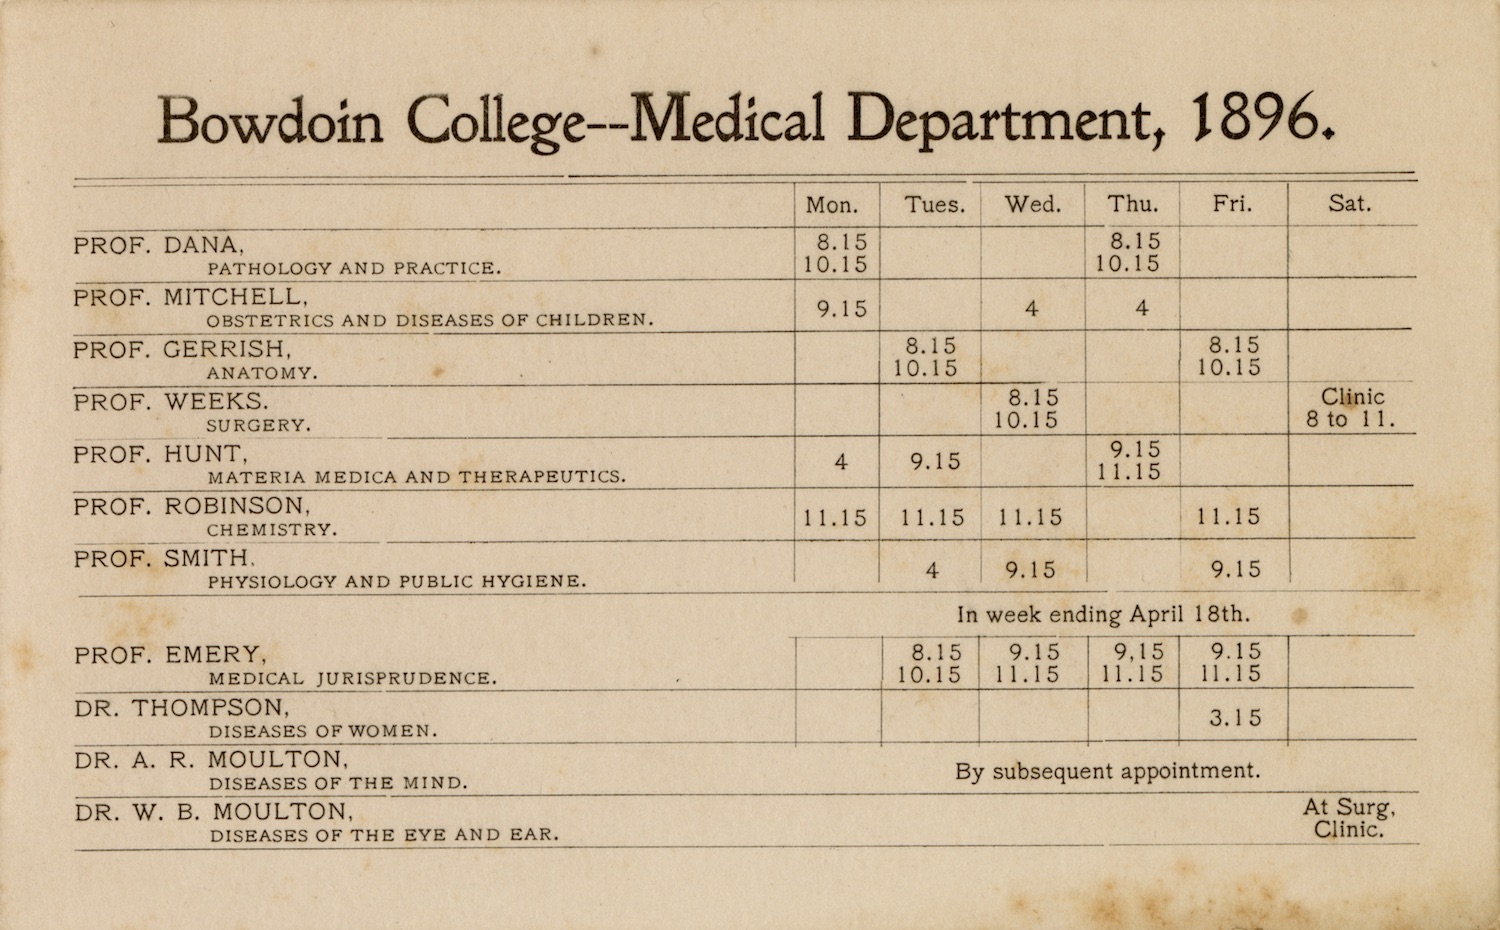 Bowdoin College--Medical Department, 1896.
Mon. Tues. Wed. Thu. Fri. Sat.
PROF. DANA, 8.15 8.15
PATHOLOGY AND PRACTICE. 10.15 10.15
PROF. MITCHELL, 9.15 4 4
OBSTETRICS AND DISEASES OF CHILDREN.
PROF. GERRISH, 8.15 8.15
ANATOMY. 10.15 10.15
PROF. WEEKS. 8.15 Clinic
SURGERY. 10.15 8 to 11.
PROF. HUNT, 4 9.15 9.15
MATERIA MEDICA AND THERAPEUTICS. 11.15
PROF. ROBINSON, 11.15 11.15 11.15 11.15
CHEMISTRY.
PROF. SMITH. 4 9.15 9.15
PHYSIOLOGY AND PUBLIC HYGIENE.
In week ending April 18th.
PROF. EMERY, 8.15 9.15 9,15 9.15
MEDICAL JURISPRUDENCE. 10.15 11.15 11.15 11.15
DR. THOMPSON, 3.15
DISEASES OF WOMEN.
DR. A. R. MOULTON, By subsequent appointment.
DISEASES OF THE MIND.
DR. W. B. MOULTON, At Surg,
DISEASES OF THE EYE AND EAR. Clinic.